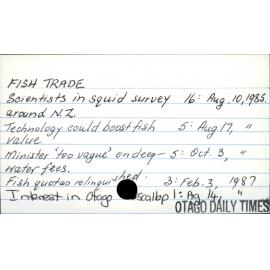 FISH TRADE
Scientists in squid survey 16: Aug. 10, 1985.
around N.Z.
Technology could boost fish 5: Aug 17, "
value
Minister 'too vague' on deep- 5: Oct. 3, "
water fees.
Fish quotas relinquished. 3: Feb. 3, 1987
Interest in Otago scallop 1: Ag. 14, "
OTAGO DAILY TIMES